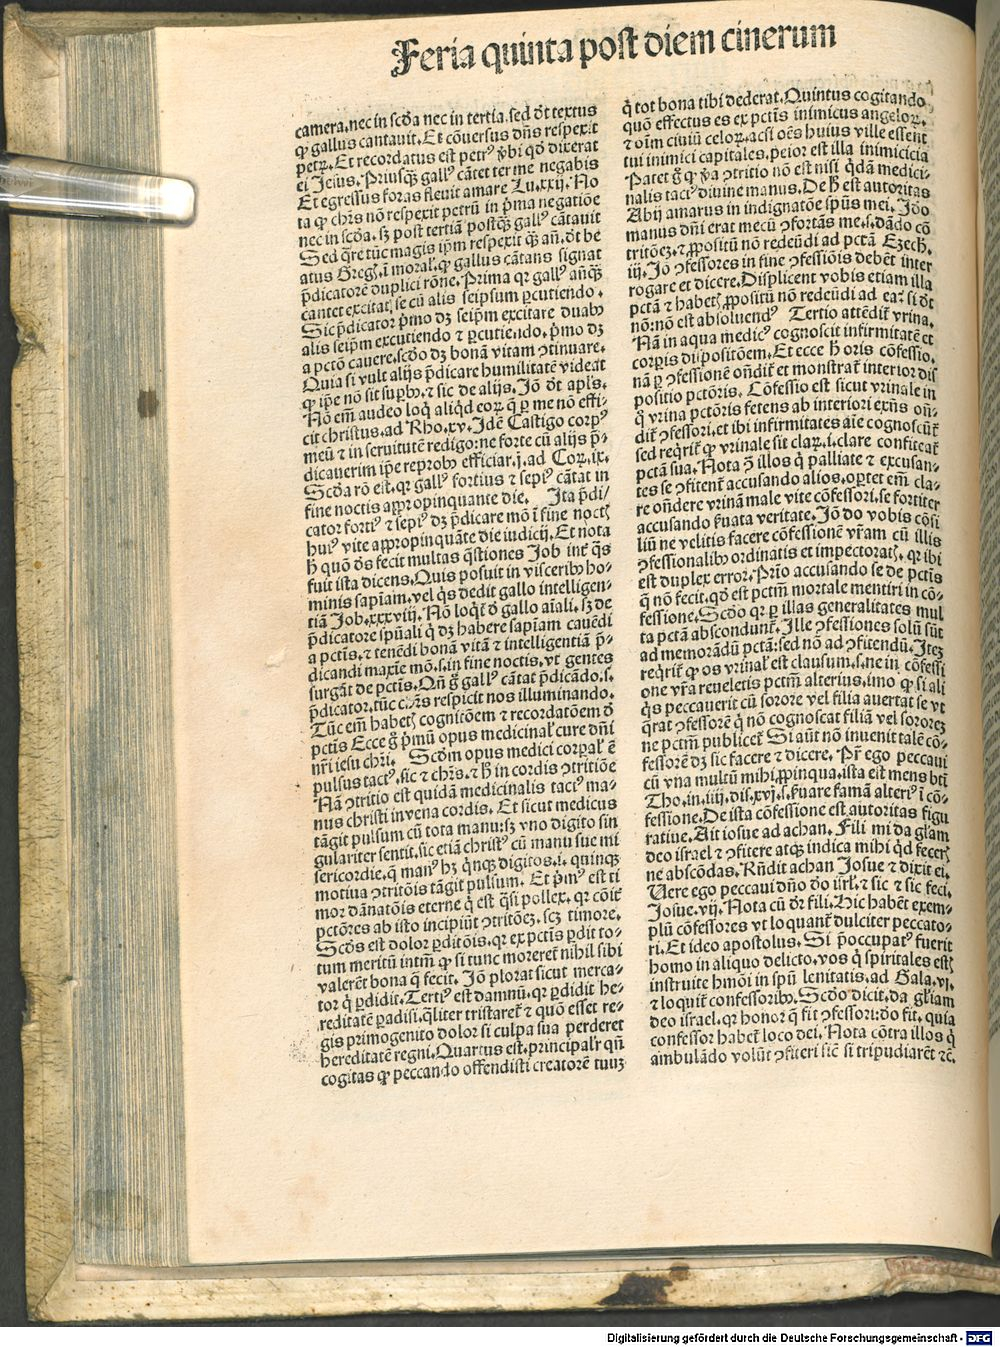 Feria quinta post diem cinerum
camera, nec in scḋa nec in tertia, sed ďt textus
ꝙ gallus cantauit. Et cōuersus dn̄s respexit
petꝝ. Et recordatus est petrꝰ v̓bi qď dixerat
ei Jesus. Priusqƺ gallꝰ cātet ter me negabis
Et egressus foras fleuit amare Lu.xxij. No
ta ꝙ chr̄s nō respexit petrū in p̄ma negatiōe
nec in scḋa. sƺ post tertiā postqƺ gallꝰ cātauit
Sed q̄re tūc magis ip̄m respexit qƺ an̄. ďt be
atus Greg. ī moral. ꝙ gallus cātans signat
p̄dicatorē duplici rōne. Prima qr gallꝰ an̄qƺ
cantet excitat se cū alis seipsum ꝑcutiendo.
Sic p̄dicator p̄mo dƺ seip̄m excitare duabꝰ
alis seip̄m excutiendo ⁊ ꝑcutiendo. p̄mo dƺ
a pctō cauere. scḋo dƺ bonā vitam ꝯtinuare.
Quia si vult alijs p̄dicare humilitatē videat
ꝙ ip̄e nō sit suꝑbꝰ. ⁊ sic de alijs. Jō ďt apl's.
Nō em̄ audeo loq̇ aliqd eoꝝ q̄ ꝑ me nō effi-
cit christus. ad Rho.xv. Idē Castigo corpꝰ
meū ⁊ in seruitutē redigo: ne forte cū alijs p̄-
dicauerim ip̄e reprobꝰ efficiar. j. ad Coꝝ.ix.
Scḋa rō est. qr gallꝰ fortius ⁊ sepiꝰ cātat in
fine noctis appropinquante die. Ita p̄di/
cator fortiꝰ ⁊ sepiꝰ dƺ p̄dicare mō ī fine noctꝭ
huiꝰ vite appropinquāte die iudicij. Et nota
ꝙ̇ quō ds̄ fecit multas q̄stiones Job int̓ q̄s
fuit ista dicens. Quis posuit in visceribꝰ ho-
minis sapiam. vel q̇s dedit gallo intelligen-
tiā Job.xxxviij. Nō loqt̄ ď gallo aīali. sƺ de
p̄dicatore spūali q̇ dƺ habere sapīam cauēdi
a pctīs. ⁊ tenēdi bonā vitā ⁊ intelligentiā p̄-
dicandi maxīe mō. s. in fine noctis. vt gentes
surgāt de pctīs. Qn̄ g̊ gallꝰ cātat p̄dicādo. s.
p̄dicator. tūc chr̄s respicit nos illuminando.
Tūc em̄ habetꝭ cognitōem ⁊ recordatōem ď
pctīs Ecce g̊ p̄mū opus medicinal' cure dn̄i
nr̄i iesu chr̄i. Scḋm opus medici corꝑal' ē
pulsus tactꝰ. sic ⁊ chr̄s. ⁊ h̄ in cordis ꝯtritiōe
Nā ꝯtritio est quidā medicinalis tactꝰ ma-
nus christi in vena cordis. Et sicut medicus
tāgit pulsum cū tota manu: sƺ vno digito sin
gulariter sentit. sic etiā christꝰ cū manu sue mi
sericordie. q̄ manꝰ hƺ q̇nqƺ digitos. i. quinqƺ
motiua ꝯtritōis tāgit pulsum. Et p̄mꝰ est ti
mor dānatōis eterne q̇ est q̄si pollex. qr cōit̓
pctōres ab isto incipiūt ꝯtritōeƺ. scƺ timore.
Scḋs est dolor ꝑditōis. qr ex pctīs ꝑdit to-
tum meritū intm̄ ꝙ si tunc moreret̄ nihil sibi
valerēt bona q̄ fecit. Jō plorat sicut merca-
tor q̇ ꝑdidit. Tertiꝰ est damnū. qr ꝑdidit he-
reditatē ꝑadisi. q̄liter tristaret̄ ⁊ quō esset re-
gis primogenito dolor si culpa sua perderet
hereditatē regni. Quartus est. principalr̄ qn̄
cogitas ꝙ peccando offendisti creatorē tuuƺ
q̇ tot bona tibi dederat. Quintus cogitando
quō effectus es ex pctīs inimicus angeloꝝ.
⁊ oīm ciuiū celoꝝ. acsi oēs huius ville essent
tui inimici capitales. peior est illa inimicicia
Patet g̊ ꝙ v̄a ꝯtritio nō est nisi q̇dā medici-
nalis tactꝰ diuine manus. De h̄ est autoritas
Abij amarus in indignatōe spūs mei. Jdo
manus dn̄i erat mecū ꝯfortās me. s. dādo cō
tritōeƺ. ⁊ ꝓpositū nō redeūdi ad pctā Ezech.
iij. Jō ꝯfessores in fine ꝯfessiōis debēt inter
rogare et dicere. Displicent vobis etiam illa
pctā ⁊ habetꝭ ꝓpositū nō redeūdi ad ea: si ďt
nō: nō est absoluendꝰ Tertio attēdit̄ vrina.
Nā in aqua medicꝰ cognoscit infirmitatē et
corꝑis dispositōem. Et ecce h̄ oris cōfessio.
nā ꝑ ꝯfessionē on̄dit̄ et monstrat̄ interior dis
positio pctōris. Cōfessio est sicut vrinale in
q̊ vrina pctōris fetens ab interiori exn̄s on̄-
dit̄ ꝯfessori. et ibi infirmitates aīe cognoscūt̄
sed reqrit̄ ꝙ vrinale sit claꝝ. i. clare confiteat̄
pctā sua. Nota ꝯ illos q̇ palliate ⁊ excusan-
tes se ꝯfitent̄ accusando alios. oꝑtet em̄ cla-
re on̄dere vrinā male vite cōfessori. se fortiter
accusando ẜuata veritate. Jō do vobis cōsi
liū ne velitis facere cōfessionē vr̄am cū illis
ꝯfessionalibꝰ ordinatis et impectoratꝭ. qr ibi
est duplex error. Prīo accusando se de pctīs
q̄ nō fecit. qď est pctm̄ mortale mentiri in cō-
fessione. Scḋo qr ꝑ illas generalitates mul
ta pctā abscondunt̄. Ille ꝯfessiones solū sūt
ad memorādū pctā: sed nō ad ꝯfitendū. Iteƺ
reqrit̄ ꝙ os vrinal' est clausum. s. ne in cōfessi
one vr̄a reueletis pctm̄ alterius. imo ꝙ si ali
q̇s peccauerit cū sorore vel filia auertat se vt
q̄rat ꝯfessorē q̇ nō cognoscat filiā vel sororeƺ
ne pctm̄ publicet̄ Si aūt nō inuenit talē cō-
fessorē dƺ sic facere ⁊ dicere. Pr̄ ego peccaui
cū vna multū mihi ꝓpinqua. ista est mens bt̄i
Tho. in.iiij. dis.xvj. s. ẜuare famā alteriꝰ ī cō-
fessione. De ista cōfessione est autoritas figu
ratiue. Ait iosue ad achan. Fili mi da glām
deo israel ⁊ ꝯfitere atqƺ indica mihi q̇d fecerꝭ
ne abscōdas. Rn̄dit achan Josue ⁊ dixit ei.
Uere ego peccaui dn̄o ďo isrl'. ⁊ sic ⁊ sic feci.
Josue.vij. Nota cū ďr fili. Hic habēt exem-
plū cōfessores vt loquant̄ dulciter peccato-
ri. Et ideo apostolus. Si p̄occupatꝰ fuerit
homo in aliquo delicto. vos q̇ spiritales estꝭ
instruite hm̄oi in spū lenitatis. ad Gala.vj.
⁊ loquit̄ confessoribꝰ. Scḋo dicit. da gl'iam
deo israel. qr honor q̄ fit ꝯfessori: ďo fit. quia
confessor habet̄ loco dei. Nota cōtra illos q̇
ambulādo volūt ꝯfiteri sic̄ si tripudiarēt ⁊c̄.
Digitalisierung gefördert durch die Deutsche Forschungsgemeinschaft - DFG